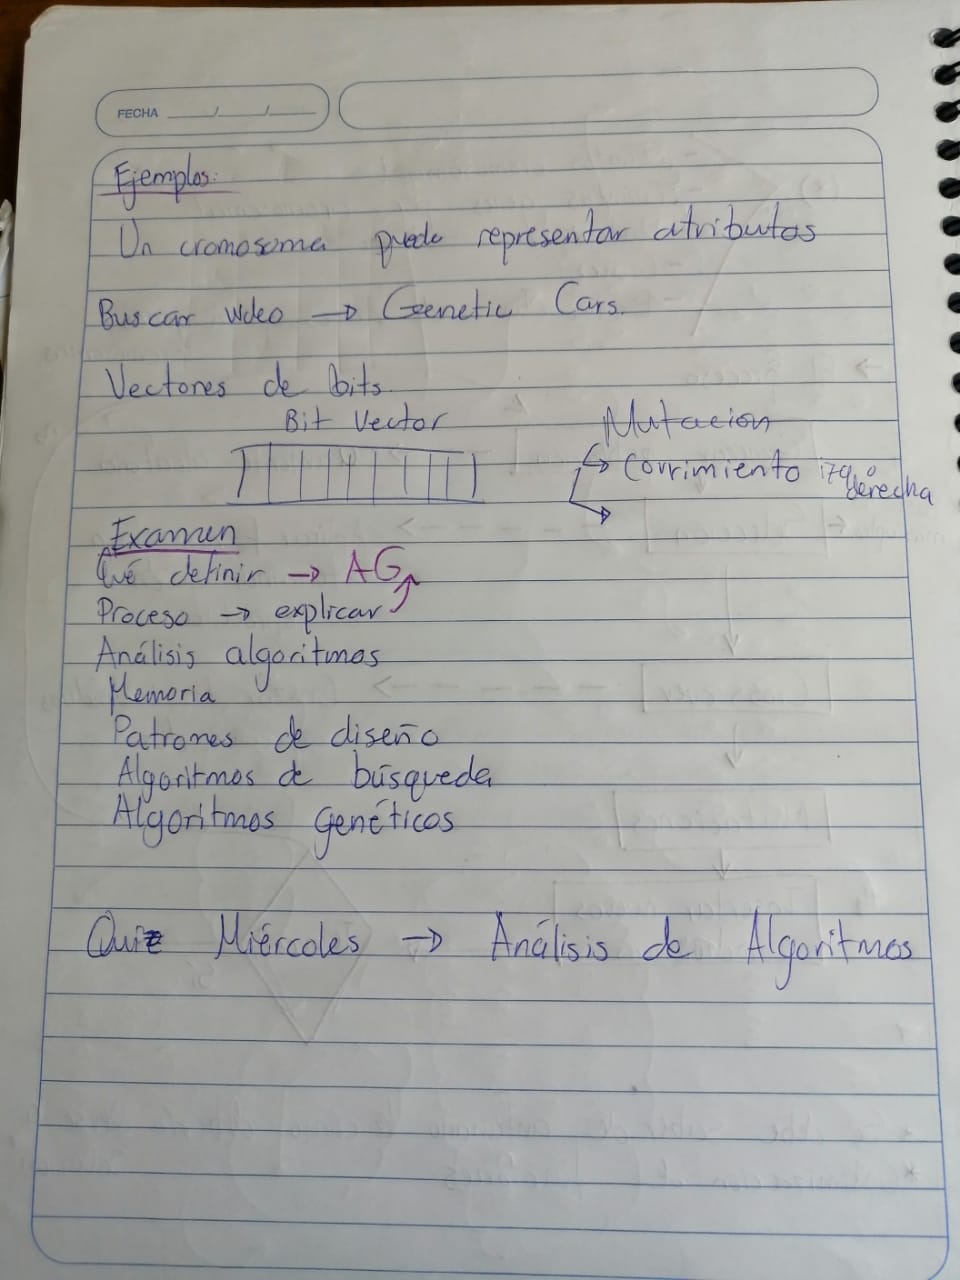 FECHA ___/___/___
Ejemplos:
Un cromosoma puede representar atributos
Buscar video → Genetic Cars.
Vectores de bits
Bit Vector
Mutacion
↳ Corrimiento izq o derecha
Examen
Qué definir → AG
Proceso → explicar
Análisis algoritmos
Memoria
Patrones de diseño
Algoritmos de búsqueda
Algoritmos genéticos
Quiz Miércoles → Análisis de Algoritmos